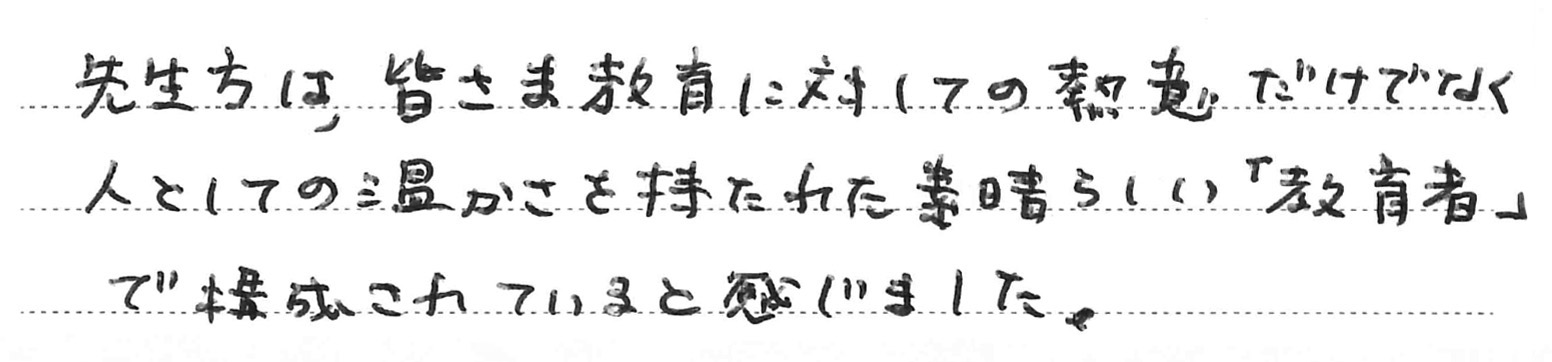 先生方は,皆さま教育に対しての熱意だけでなく
人としての温かさを持たれた素晴らしい「教育者」
で構成されていると感じました。